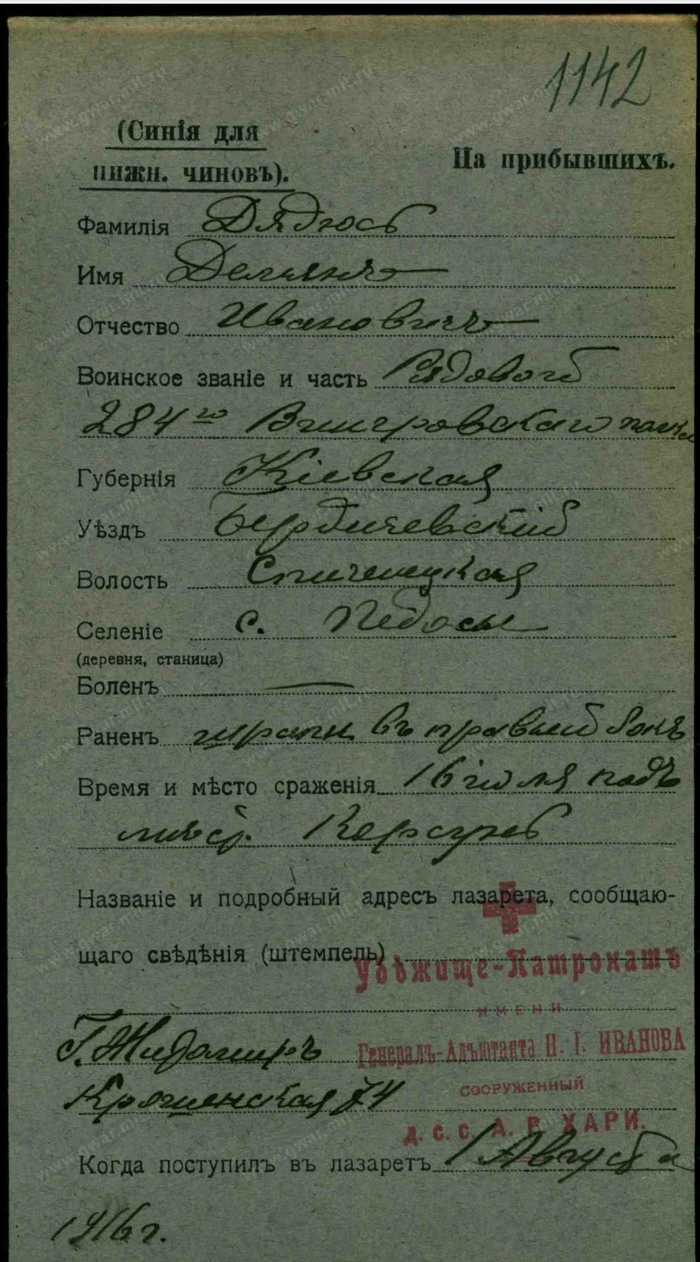 1142
(Синія для
нижн. чиновъ).
На прибывшихъ.
Фамилія Дядюсь
Имя Демянъ
Отчество Ивановичъ
Воинское званіе и часть Рядовой
284го Венгровскаго полка
Губернія Кіевская
Уѣздъ Бердичевскій
Волость Спичинецкая
Селеніе с. Педосы
(деревня, станица)
Боленъ —
Раненъ шрапн въ правый бокъ
Время и мѣсто сраженія 16 іюля подъ
мѣст.
Названіе и подробный адресъ лазарета, сообщаю-
щаго свѣдѣнія (штемпель)
Убѣжище-Патронатъ
ИМЕНИ
Генералъ-Адъютанта Н. І. ИВАНОВА
СООРУЖЕННЫЙ
Д. С. С. А. Р. ХАРИ.
Г. Житомиръ
Крошенская 74
Когда поступилъ въ лазаретъ 1 Августа
1916 г.